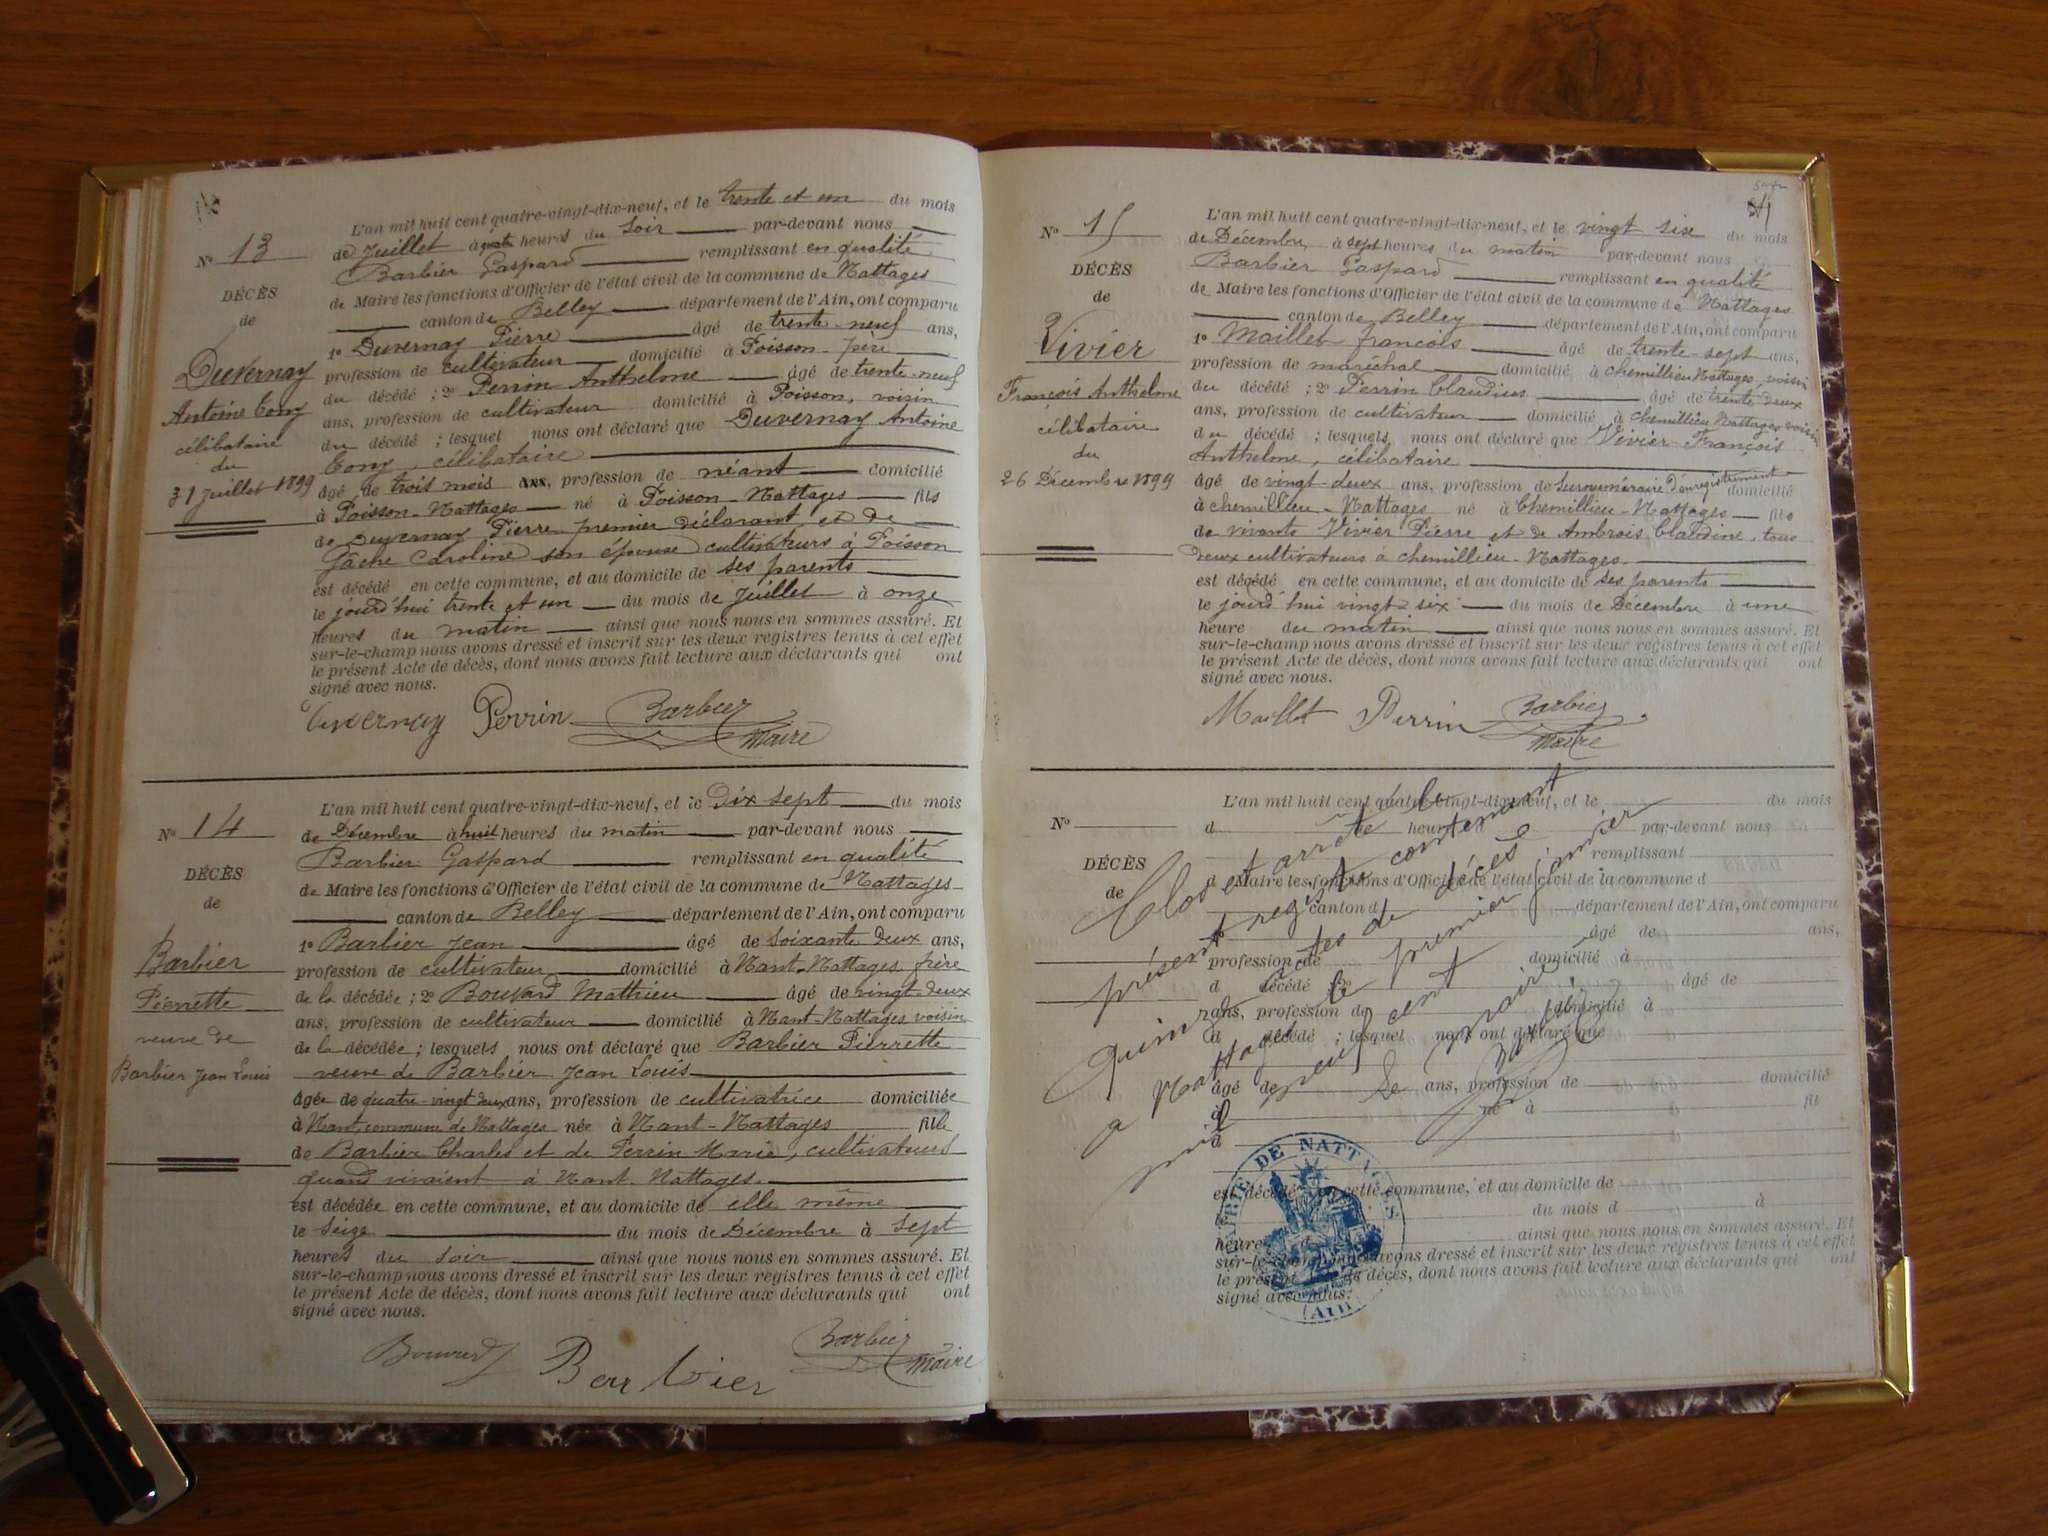 L'an mil huit cent quatre-vingt-dix-neuf, et le trente et un du mois
de Juillet à quatre heures du soir par-devant nous
Barbier Gaspard remplissant en qualité
de Maire les fonctions d'Officier de l'état civil de la commune de Nattages
canton de Belley département de l'Ain, ont comparu
1º Duvernay Pierre âgé de trente-neuf ans,
profession de cultivateur domicilié à Poisson père
du décédé ; 2º Perrin Anthelme âgé de trente-neuf
ans, profession de cultivateur domicilié à Poisson, voisin
du décédé ; lesquel nous ont déclaré que Duvernay Antoine
Tony, célibataire
âgé de trois mois ans, profession de néant domicilié
à Poisson-Nattages né à Poisson-Nattages fils
de Duvernay Pierre premier déclarant et de
Gache Caroline son épouse cultivateurs à Poisson
est décédé en cette commune, et au domicile de ses parents
le jourd'hui trente et un du mois de Juillet à onze
heures du matin ainsi que nous nous en sommes assuré. Et
sur-le-champ nous avons dressé et inscrit sur les deux registres tenus à cet effet
le présent Acte de décès, dont nous avons fait lecture aux déclarants qui ont
signé avec nous.
Duvernay Perrin Barbier
Maire
Nº 13
DÉCÈS
de
Duvernay
Antoine Tony
célibataire
du
31 Juillet 1899
L'an mil huit cent quatre-vingt-dix-neuf, et le dix sept du mois
de Décembre à huit heures du matin par-devant nous
Barbier Gaspard remplissant en qualité
de Maire les fonctions d'Officier de l'état civil de la commune de Nattages
canton de Belley département de l'Ain, ont comparu
1º Barbier Jean âgé de soixante deux ans,
profession de cultivateur domicilié à Nant-Nattages frère
de la décédée ; 2º Bouvard Mathieu âgé de vingt-deux
ans, profession de cultivateur domicilié à Nant-Nattages voisin
de la décédée ; lesquels nous ont déclaré que Barbier Pierrette
veuve de Barbier Jean Louis
âgée de quatre-vingt deux ans, profession de cultivatrice domiciliée
à Nant commune de Nattages née à Nant-Nattages fille
de Barbier Charles et de Perrin Marie, cultivateurs
quand vivaient à Nant-Nattages.
est décédée en cette commune, et au domicile de elle même
le seize du mois de Décembre à sept
heures du soir ainsi que nous nous en sommes assuré. Et
sur-le-champ nous avons dressé et inscrit sur les deux registres tenus à cet effet
le présent Acte de décès, dont nous avons fait lecture aux déclarants qui ont
signé avec nous.
Bouvard Barbier Barbier
Maire
Nº 14
DÉCÈS
de
Barbier
Pierrette
veuve de
Barbier Jean Louis
L'an mil huit cent quatre-vingt-dix-neuf, et le vingt six du mois
de Décembre à sept heures du matin par-devant nous
Barbier Gaspard remplissant en qualité
de Maire les fonctions d'Officier de l'état civil de la commune de Nattages
canton de Belley département de l'Ain, ont comparu
1º Maillet françois âgé de trente-sept ans,
profession de maréchal domicilié à chemillieu Nattages, voisin
du décédé ; 2º Perrin Claudius âgé de trente deux
ans, profession de cultivateur domicilié à chemillieu Nattages voisin
du décédé ; lesquels nous ont déclaré que Vivier François
Anthelme, célibataire
âgé de vingt-deux ans, profession de Surnuméraire d'enregistrement domicilié
à chemillieu-Nattages né à Chemillieu-Nattages fils
de vivants Vivier Pierre et de Ambrois Claudine, tous
deux cultivateurs à chemillieu-Nattages.
est décédé en cette commune, et au domicile de ses parents
le jourd'hui vingt-six du mois de Décembre à une
heure du matin ainsi que nous nous en sommes assuré. Et
sur-le-champ nous avons dressé et inscrit sur les deux registres tenus à cet effet
le présent Acte de décès, dont nous avons fait lecture aux déclarants qui ont
signé avec nous.
Maillet Perrin Barbier
Maire
Nº 15
DÉCÈS
de
Vivier
François Anthelme
célibataire
du
26 Décembre 1899
L'an mil huit cent quatre-vingt-dix-neuf, et le du mois
d heure par-devant nous
remplissant
d Maire les fonctions d'Officier de l'état civil de la commune d
canton d département de l'Ain, ont comparu
âgé de ans,
profession de domicilié à
d décédé ; 2º âgé de
ans, profession de domicilié à
d décédé ; lesquel nous ont déclaré que
âgé de ans, profession de domicilié
à né à fil
d
est décédé en cette commune, et au domicile de
le du mois d à
heure d ainsi que nous nous en sommes assuré. Et
sur-le-champ nous avons dressé et inscrit sur les deux registres tenus à cet effet
le présent Acte de décès, dont nous avons fait lecture aux déclarants qui ont
signé avec nous.
Nº
DÉCÈS
de
Clos et arrêté le
présent registre contenant
quinze actes de décès
à Nattages le premier janvier
mil neuf cent
Le Maire
Barbier
MAIRIE DE NATTAGES
(AIN)